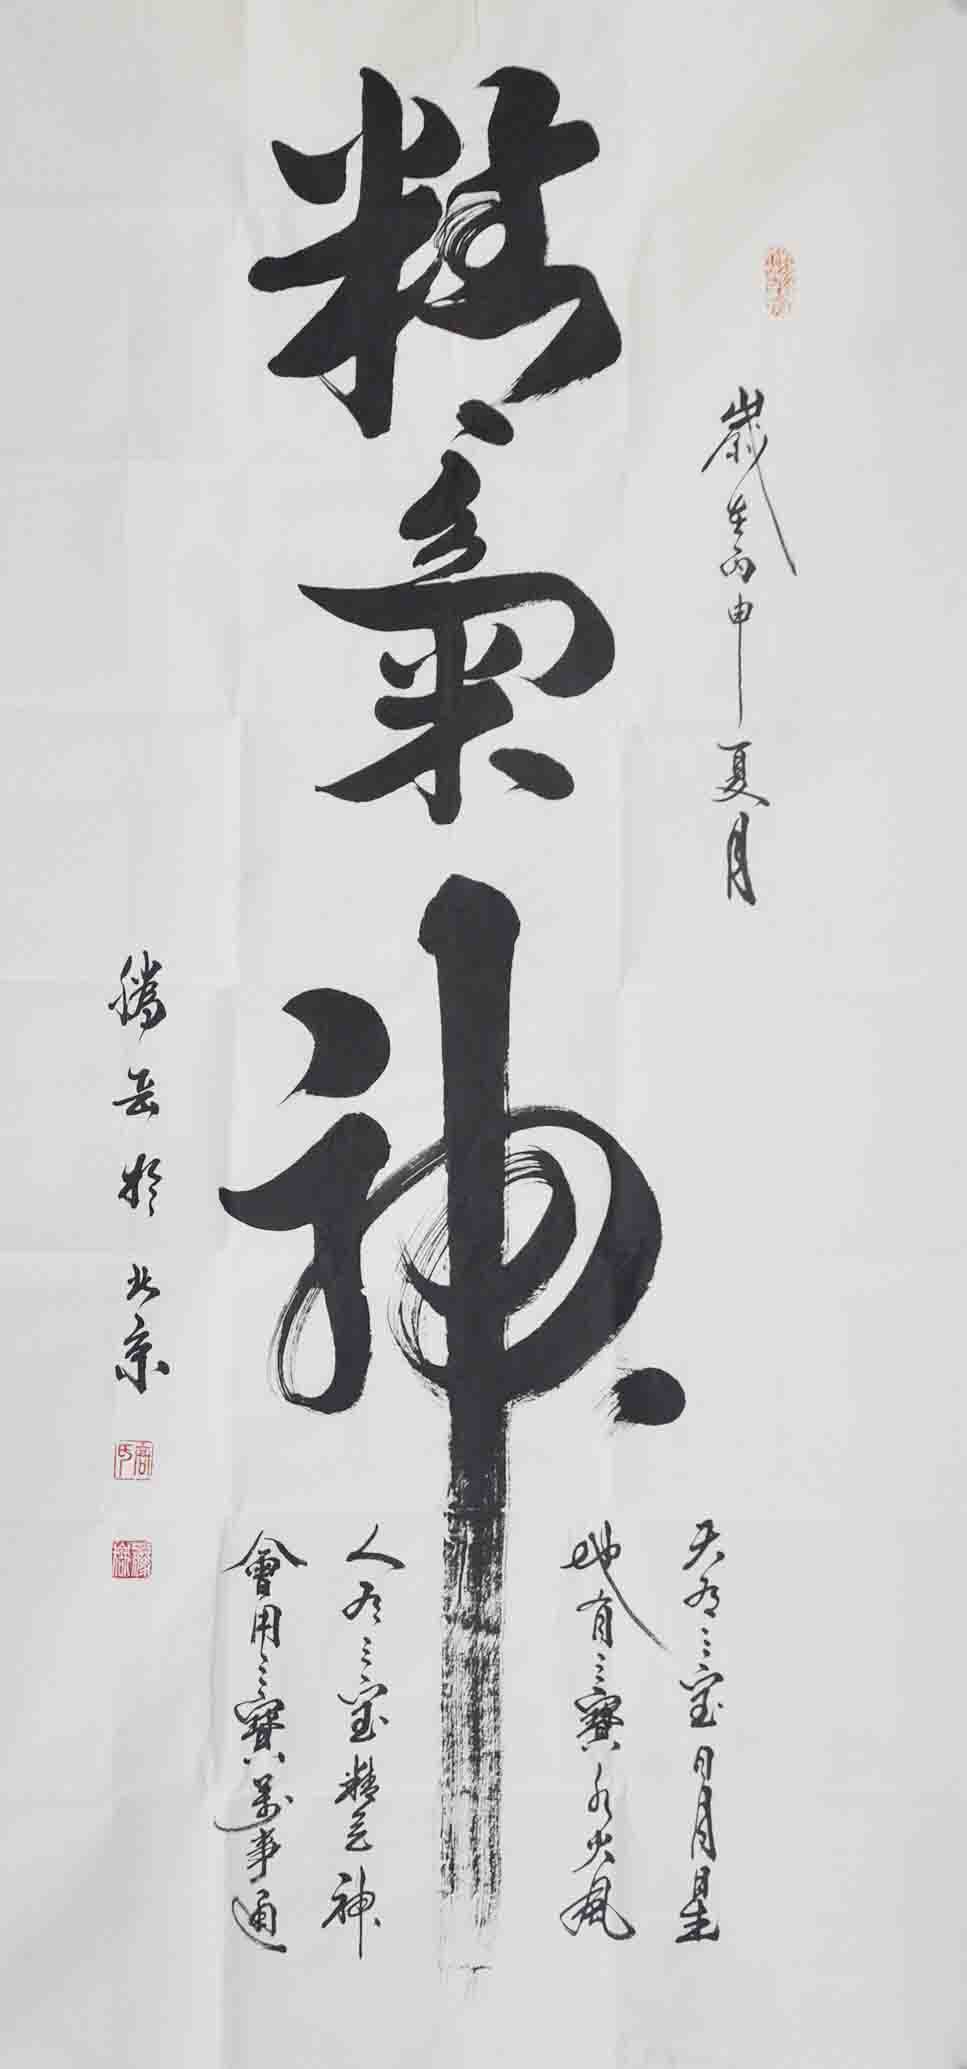 歲在丙申夏月
精氣神
天有三宝日月星
地有三寶水火風
人有三宝精气神
會用三寶萬事通
腾岳於北京